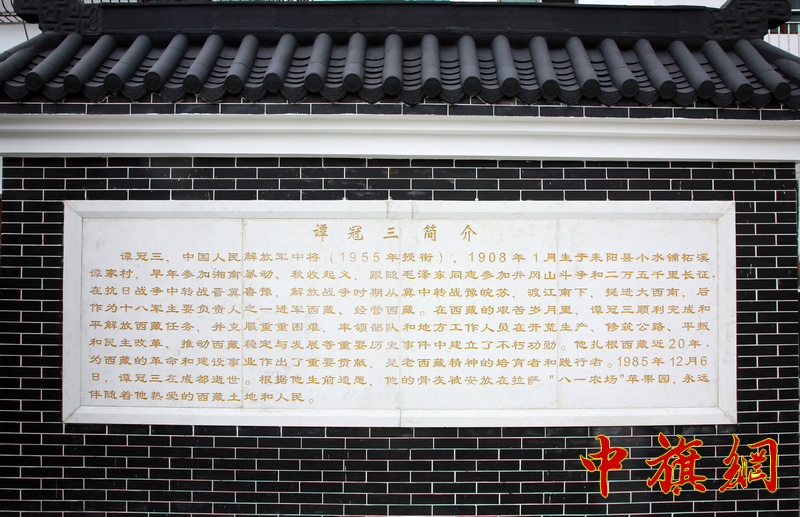 谭冠三简介
谭冠三，中国人民解放军中将（1955年授衔），1908年1月生于耒阳县小水铺柘溪
谭家村，早年参加湘南暴动、秋收起义，跟随毛泽东同志参加井冈山斗争和二万五千里长征，
在抗日战争中转战晋冀鲁豫，解放战争时期从冀中转战豫皖苏，渡江南下，挺进大西南，后
作为十八军主要负责人之一进军西藏、经营西藏。在西藏的艰苦岁月里，谭冠三顺利完成和
平解放西藏任务，并克服重重困难，率领部队和地方工作人员在开荒生产、修筑公路、平叛
和民主改革、推动西藏稳定与发展等重要历史事件中建立了不朽功勋。他扎根西藏近20年，
为西藏的革命和建设事业作出了重要贡献，是老西藏精神的培育者和践行者。1985年12月6
日，谭冠三在成都逝世。根据他生前遗愿，他的骨灰被安放在拉萨“八一农场”苹果园，永远
伴随着他热爱的西藏土地和人民。
中旗網